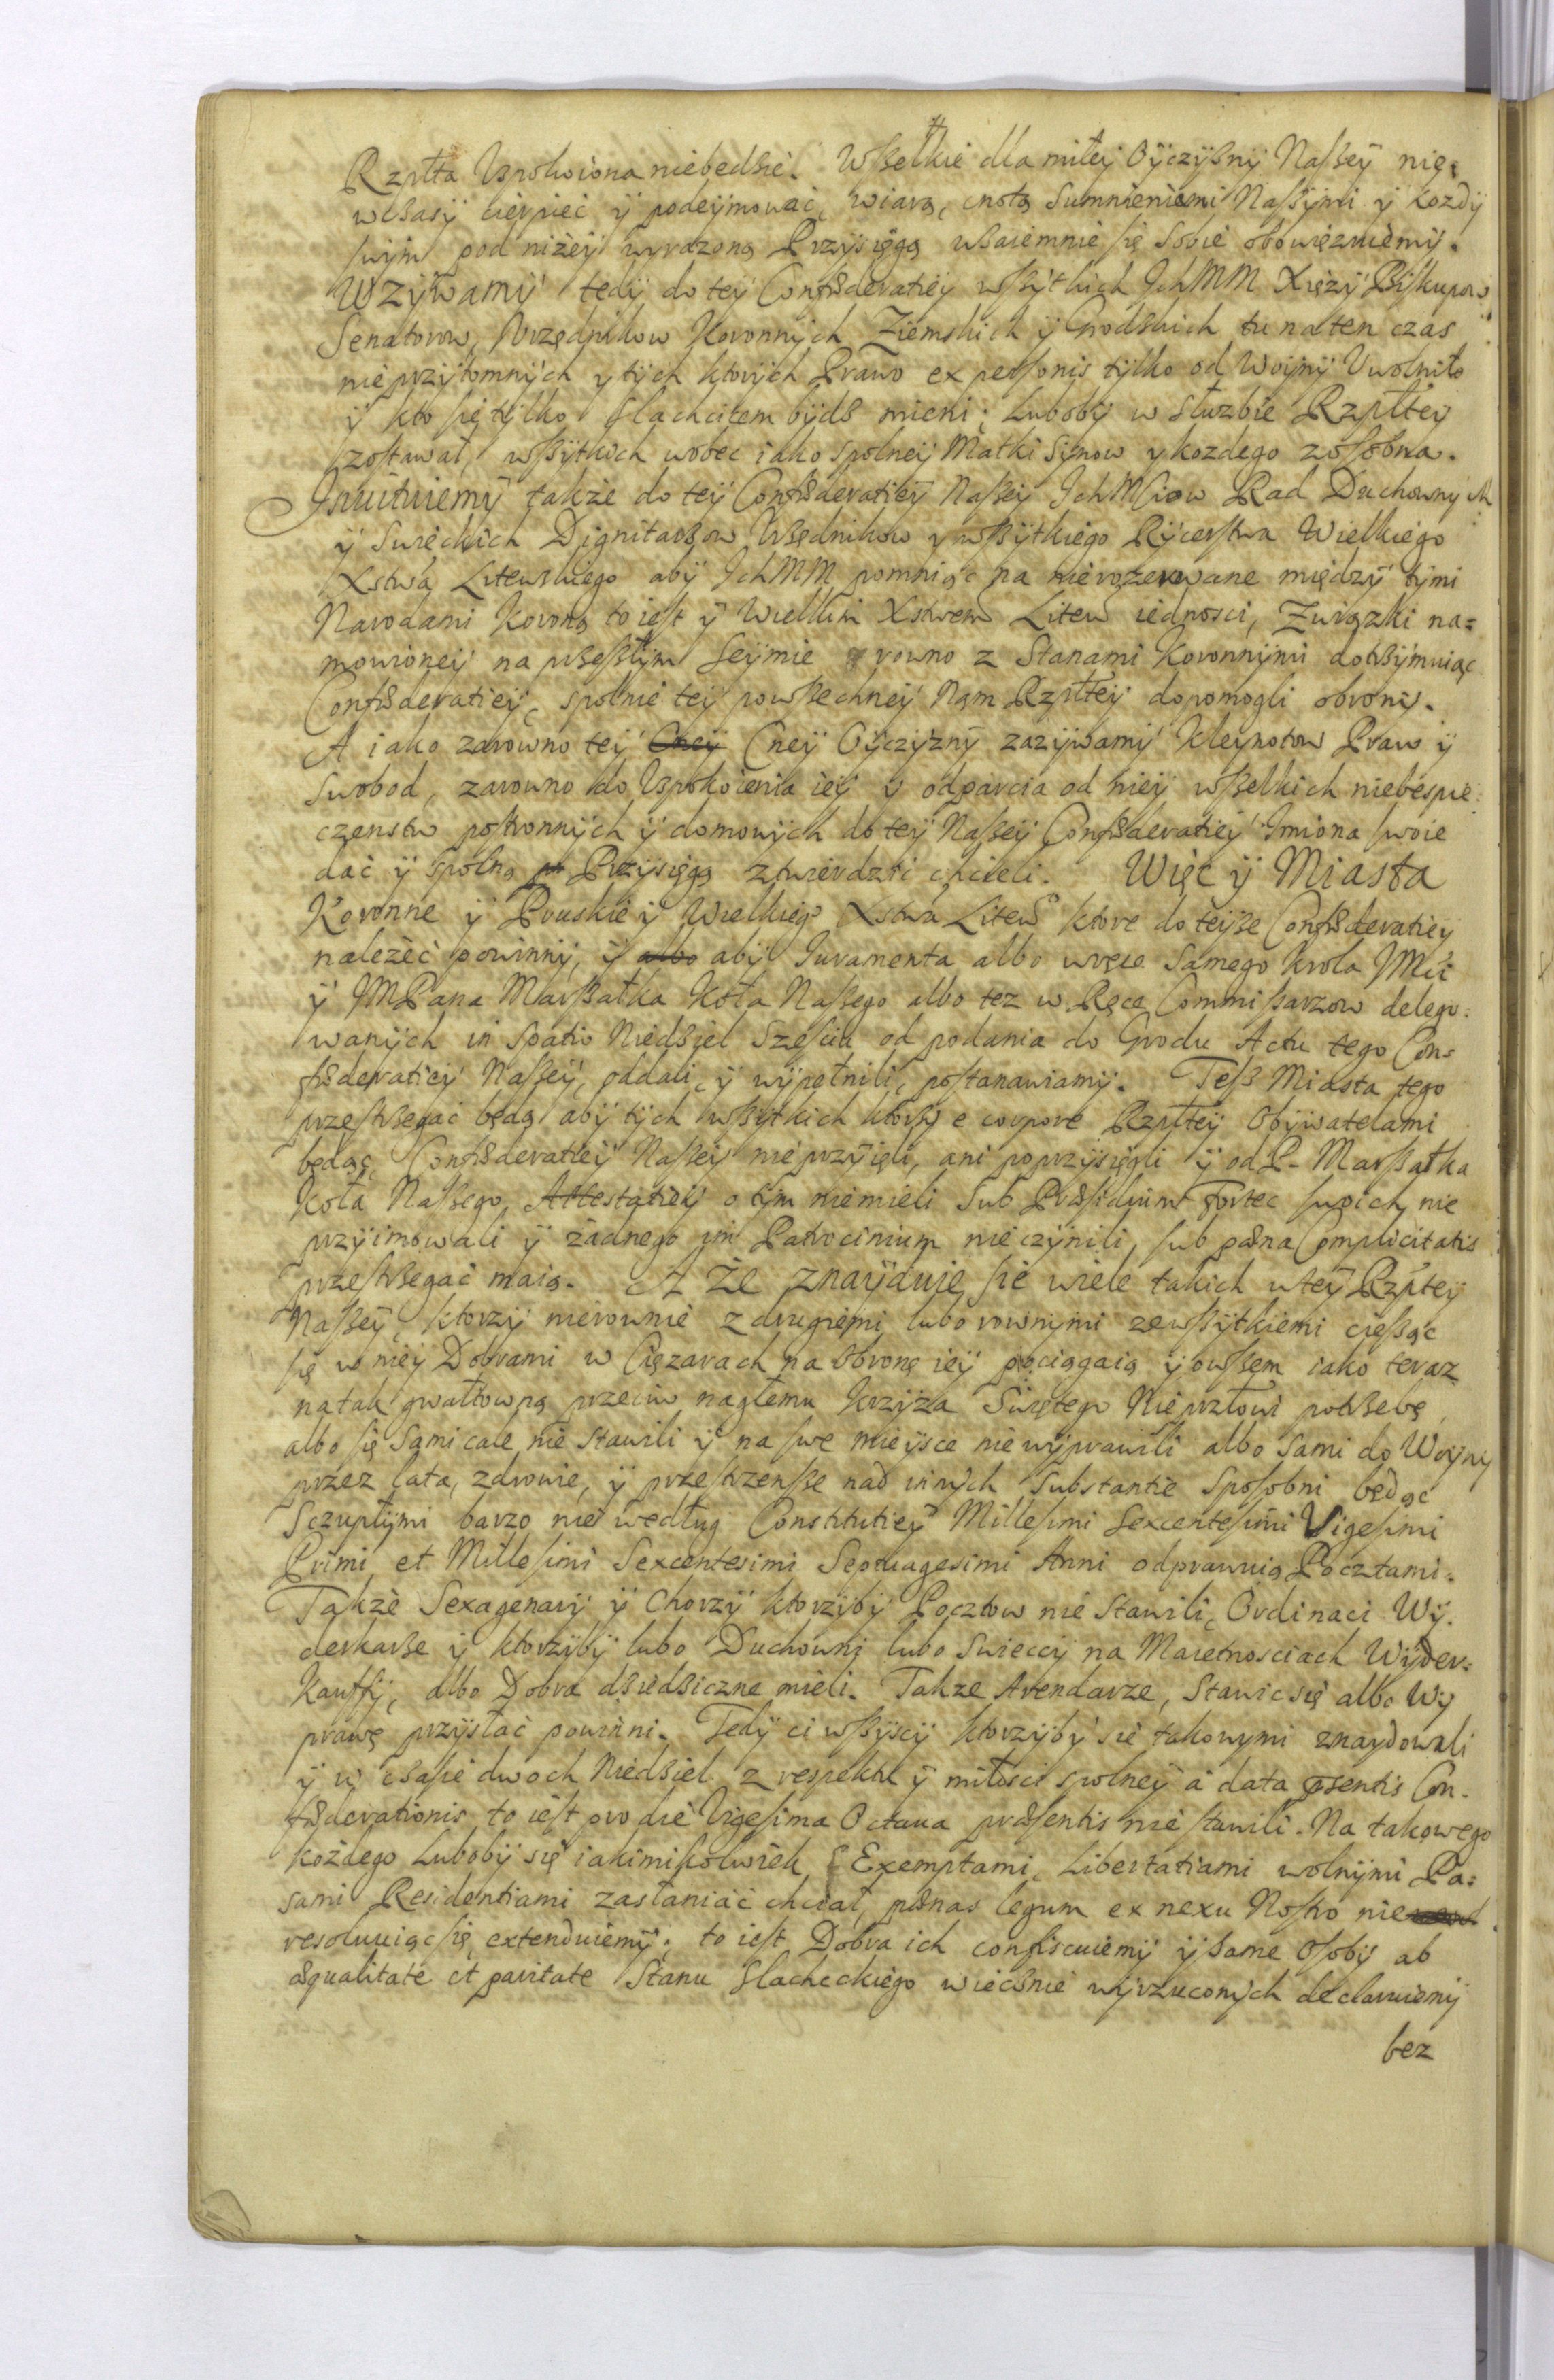 Rzplta Uspokoiona niebędzie. Wszelkie dla miłey Oyczyzny Naszey nie,
wczasy cierpieć y podeymować, wiarą, cnotą Sumnieniami Naszymi y kozdy
swym pod niżey wyrazoną Przysięgą wzaiemnie się Sobie obowięzuiemy.
Wzywamy tedy do tey Confœderatiey wszytkich IchMM Xięży Biskupow
Senatorow, Urzędnikow Koronnych Ziemskich y Grodskich tu na ten czas
nieprzytomnych y tych ktorych Prawo ex personis tylko od Woyny Uwolniło
y kto się tylko Slachcicem bydz mieni; Luboby w służbie Rzpltey
zostawał, wszytkich wobec iako spolney Matki Synow y kozdego zosobna.
Inuituiemy także do tey Confœderatiey Naszey IchMciow Rad Duchownych
y Swieckich Dignitarzow Urzędnikow y wszytkiego Rycerstwa Wielkiego
Xstwa Litewskiego aby IchMM pomniąc na nierozerwane między tymi
Narodami Koroną to iest y Wielkim Xstwem Litew iednosci, Związki na=
mowioney na przeszłym Seymie rowno z Stanami Koronnymi dotrzymuiąc
Confœderatiey, spolnie tey powszechney Nam Rzpltey dopomogli obrony.
A iako zarowno tey Cney Cney Oyczyzny zazywamy Kleynotow Praw y
Swobod, zarowno do Uspokoienia iey y odparcia od niey wszelkich niebespie=
czenstw postronnych y domowych do tey Naszey Confœderatiey Imiona swoie
dać y spolną Przysięgą ztwierdzić chcieli. Więc y Miasta
Koronne y Pruskie y Wielkieg° Xstwa Litew ktore do teyze Confœderatiey
należeć powinny, y albo aby Iuramenta albo wręce Samego Krola JMci
y JMPana Marszałka Koła Naszego albo tez w Ręce Commissarzow delego=
wanych in spatio Niedziel Szesciu od podania do Grodu Actu tego Con=
fœderatiey Naszey, oddali, y wypełnili, postanawiamy. Tesz Miasta tego
przestrzegać będą aby tych wszytkich ktorzy e corpore Rzpltey Obywatelami
będąc Confœderatiey Naszey nieprzyięli, ani poprzysięgli y od P. Marszałka
Koła Naszego, Attestatiey o tym niemieli Sub Præsidium Fortec swoich nie
przyimowali y żadnego im Patrocinium nieczynili, sub pœna Complicitatis
przestrzegać maią. A Że znayduie sie wiele takich w tey Rzpltey
Naszey, ktorzy nierownie z drugiemi lubo rownymi zewszytkiemi ciesząc
się w niey Dobrami w Ciężarach na Obronę iey pociągaią y owszem iako teraz
na tak gwałtowną przeciw nagłemu Krzyża Swiętego Nieprzłowi potrzebę,
albo się Sami cale nie stawili y na swe mieysce nie wyprawili albo Sami do Woyny
przez lata, zdrowie, y przestrzensze nad innych Substantie Sposobni będąc
Sczupłymi barzo nie według Constitutiey Millesimi Sexcentesimi Vigesimi
Primi et Millesimi Sexcentesimi Septuagesimi Anni odprawuią Pocztami.
Takze Sexagenary y Chorzy ktorzyby Pocztow nie stawili, Ordinaci Wy=
derkarze y ktorzyby lubo Duchowni lubo Swieccy na Maietnosciach Wyder=
kauffy, albo Dobra dziedziczne mieli. Takze Arendarze, Stawic się albo Wy
prawę przysłać powinni. Tedy ci wszyscy ktorzyby się takowymi znaydowali
y w czasie dwoch Niedziel z respektu y miłosci spolney a data præsentis Con=
fœderationis to iest pro die Vigesima Octaua præsentis nie stawili. Na takowego
kożdego Luboby się iakimikolwiek Exemptami, Libertatiami wolnymi Pa=
sami Residentiami zasłaniać chciał, pœnas legum ex nexu Nostro nie
resoluuiąc się extenduiemy; to iest Dobra ich confiscuiemy y same Osoby ab
æqualitate et paritate Stanu Slacheckiego wiecznie wyrzuconych declaruiemy
bez